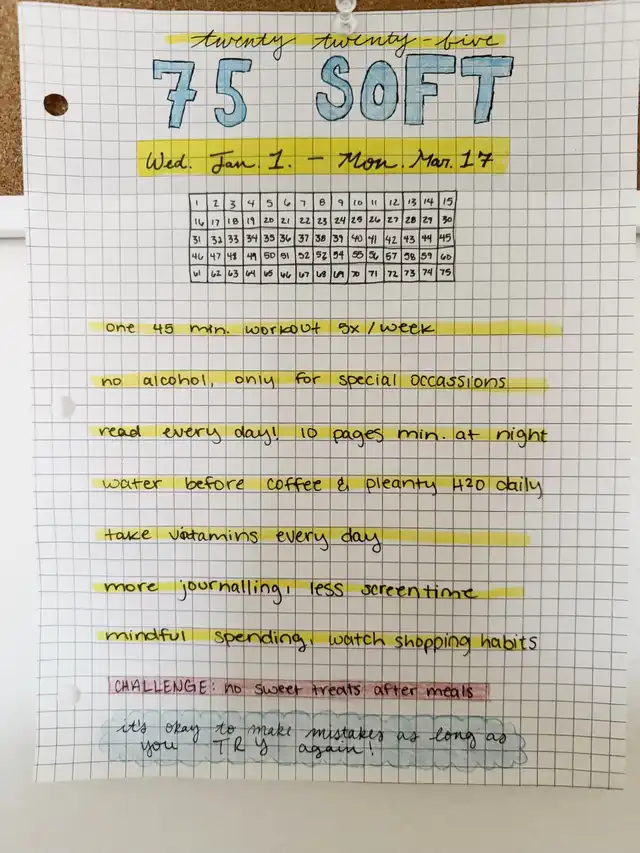 twenty twenty-five
75 SOFT
Wed. Jan. 1. - Mon. Mar. 17
1 2 3 4 5 6 7 8 9 10 11 12 13 14 15
16 17 18 19 20 21 22 23 24 25 26 27 28 29 30
31 32 33 34 35 36 37 38 39 40 41 42 43 44 45
46 47 48 49 50 51 52 53 54 55 56 57 58 59 60
61 62 63 64 65 66 67 68 69 70 71 72 73 74 75
one 45 min. workout 5x/week
no alcohol, only for special occassions
read every day! 10 pages min. at night
water before coffee & pleanty H2O daily
take vatamins every day
more journalling, less screentime
mindful spending, watch shopping habits
CHALLENGE: no sweet treats after meals
it's okay to make mistakes as long as
you TRY again!